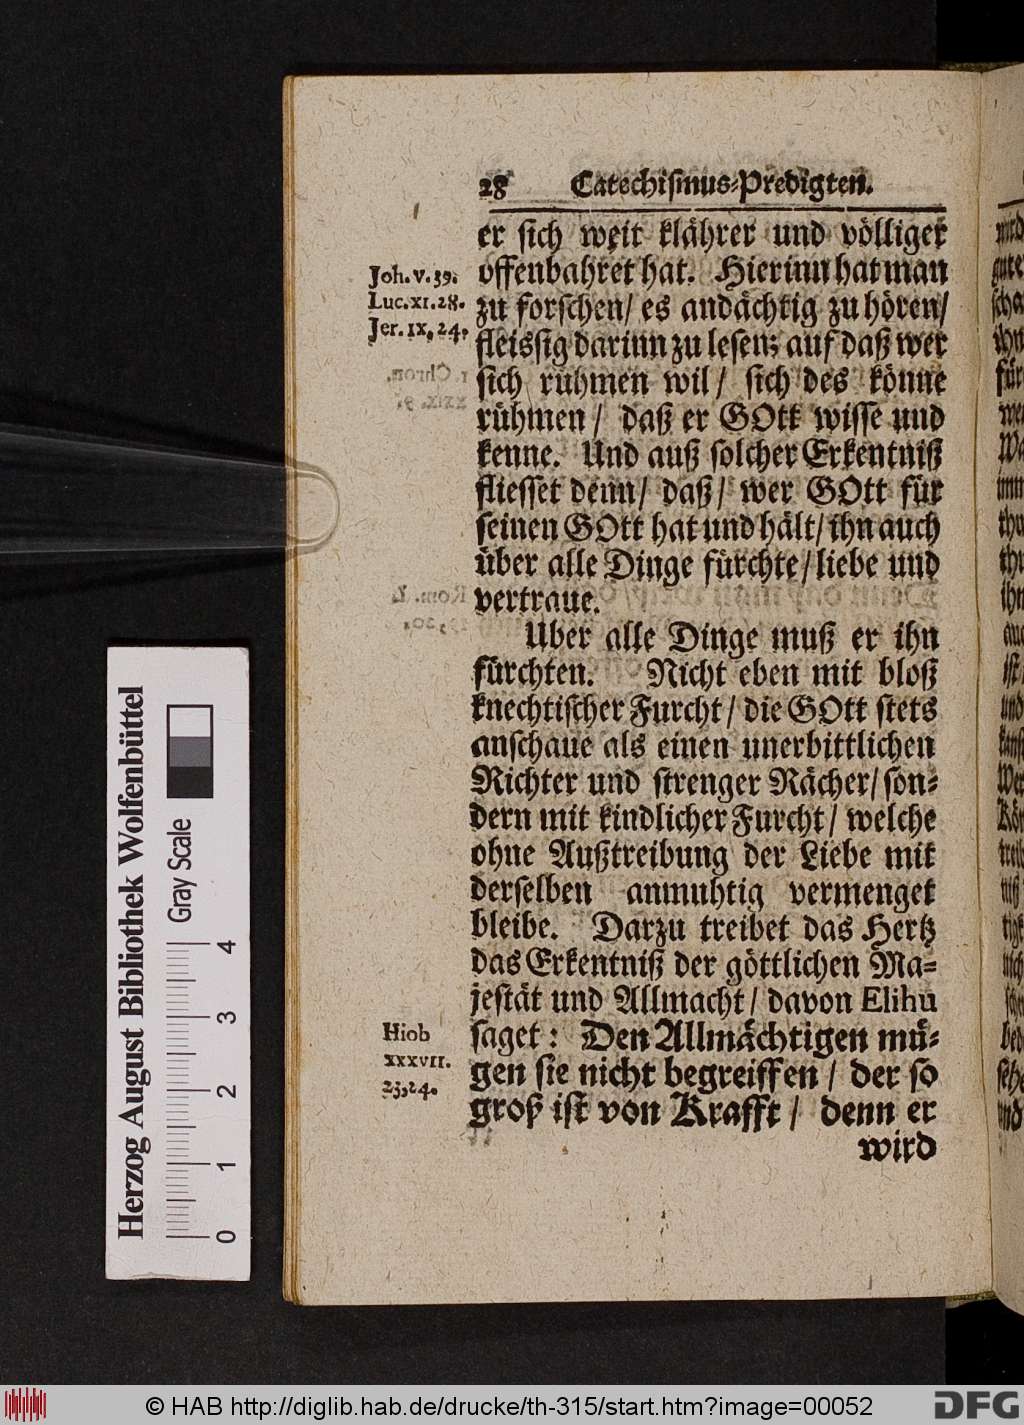 28 Catechismus-Predigten.
er sich weit klährer und völliger
offenbahret hat. Hierinn hat man
zu forschen/ es andächtig zu hören/
fleissig darinn zu lesen; auf daß wer
sich rühmen wil/ sich des könne
rühmen/ daß er GOtt wisse und
kenne. Und auß solcher Erkentniß
fliesset denn/ daß/ wer GOtt für
seinen GOtt hat und hält/ ihn auch
über alle Dinge fürchte/ liebe und
vertraue.
Uber alle Dinge muß er ihn
fürchten. Nicht eben mit bloß
knechtischer Furcht/ die GOtt stets
anschaue als einen unerbittlichen
Richter und strenger Rächer/ son-
dern mit kindlicher Furcht/ welche
ohne Außtreibung der Liebe mit
derselben anmuhtig vermenget
bleibe. Darzu treibet das Hertz
das Erkentniß der göttlichen Ma-
jestät und Allmacht/ davon Elihu
saget: Den Allmächtigen mü-
gen sie nicht begreiffen/ der so
groß ist von Krafft/ denn er
wird
Joh. v. 39.
Luc. xi. 28.
Jer. ix, 24.
Hiob
xxxvii.
23, 24.
Herzog August Bibliothek Wolfenbüttel
Gray Scale
0 1 2 3 4
© HAB http://diglib.hab.de/drucke/th-315/start.htm?image=00052
DFG